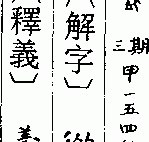 三期
甲一五四
〔解字〕
〔釋義〕